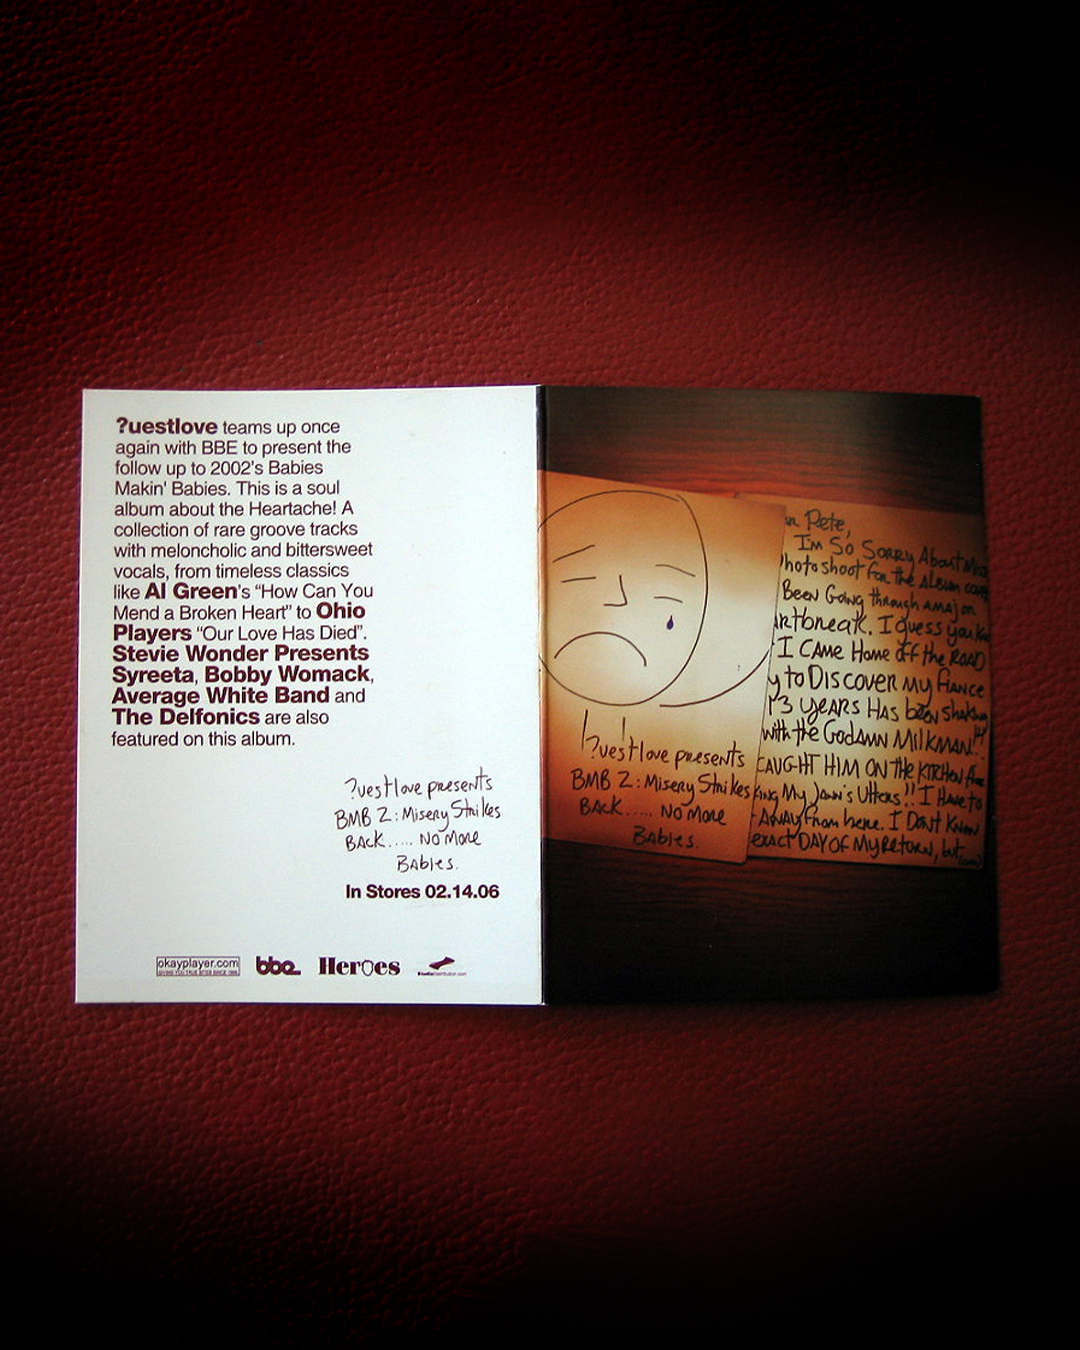 ?uestlove teams up once
again with BBE to present the
follow up to 2002's Babies
Makin' Babies. This is a soul
album about the Heartache! A
collection of rare groove tracks
with meloncholic and bittersweet
vocals, from timeless classics
like Al Green's “How Can You
Mend a Broken Heart” to Ohio
Players “Our Love Has Died”.
Stevie Wonder Presents
Syreeta, Bobby Womack,
Average White Band and
The Delfonics are also
featured on this album.
?uestlove presents
BMB 2: Misery Strikes
BACK..... No More
Babies.
In Stores 02.14.06
okayplayer.com
bbe
Heroes
?uestlove presents
BMB 2: Misery Strikes
BACK..... No More
Babies.
Pete,
I'm So Sorry About
hoto shoot for the Album cover
Been Going through A maj on
artbreak. I guess you
I CAme Home off the ROAD
y to Discover my fiance
3 yeARs HAs been shaking
with the Godamn MilkMAN!!
CAUGHT HIM ON the KITCHEN
king My Jawn's Utters!! I HAve to
AwAy from here. I Dont Know
exact DAY OF My Return, but